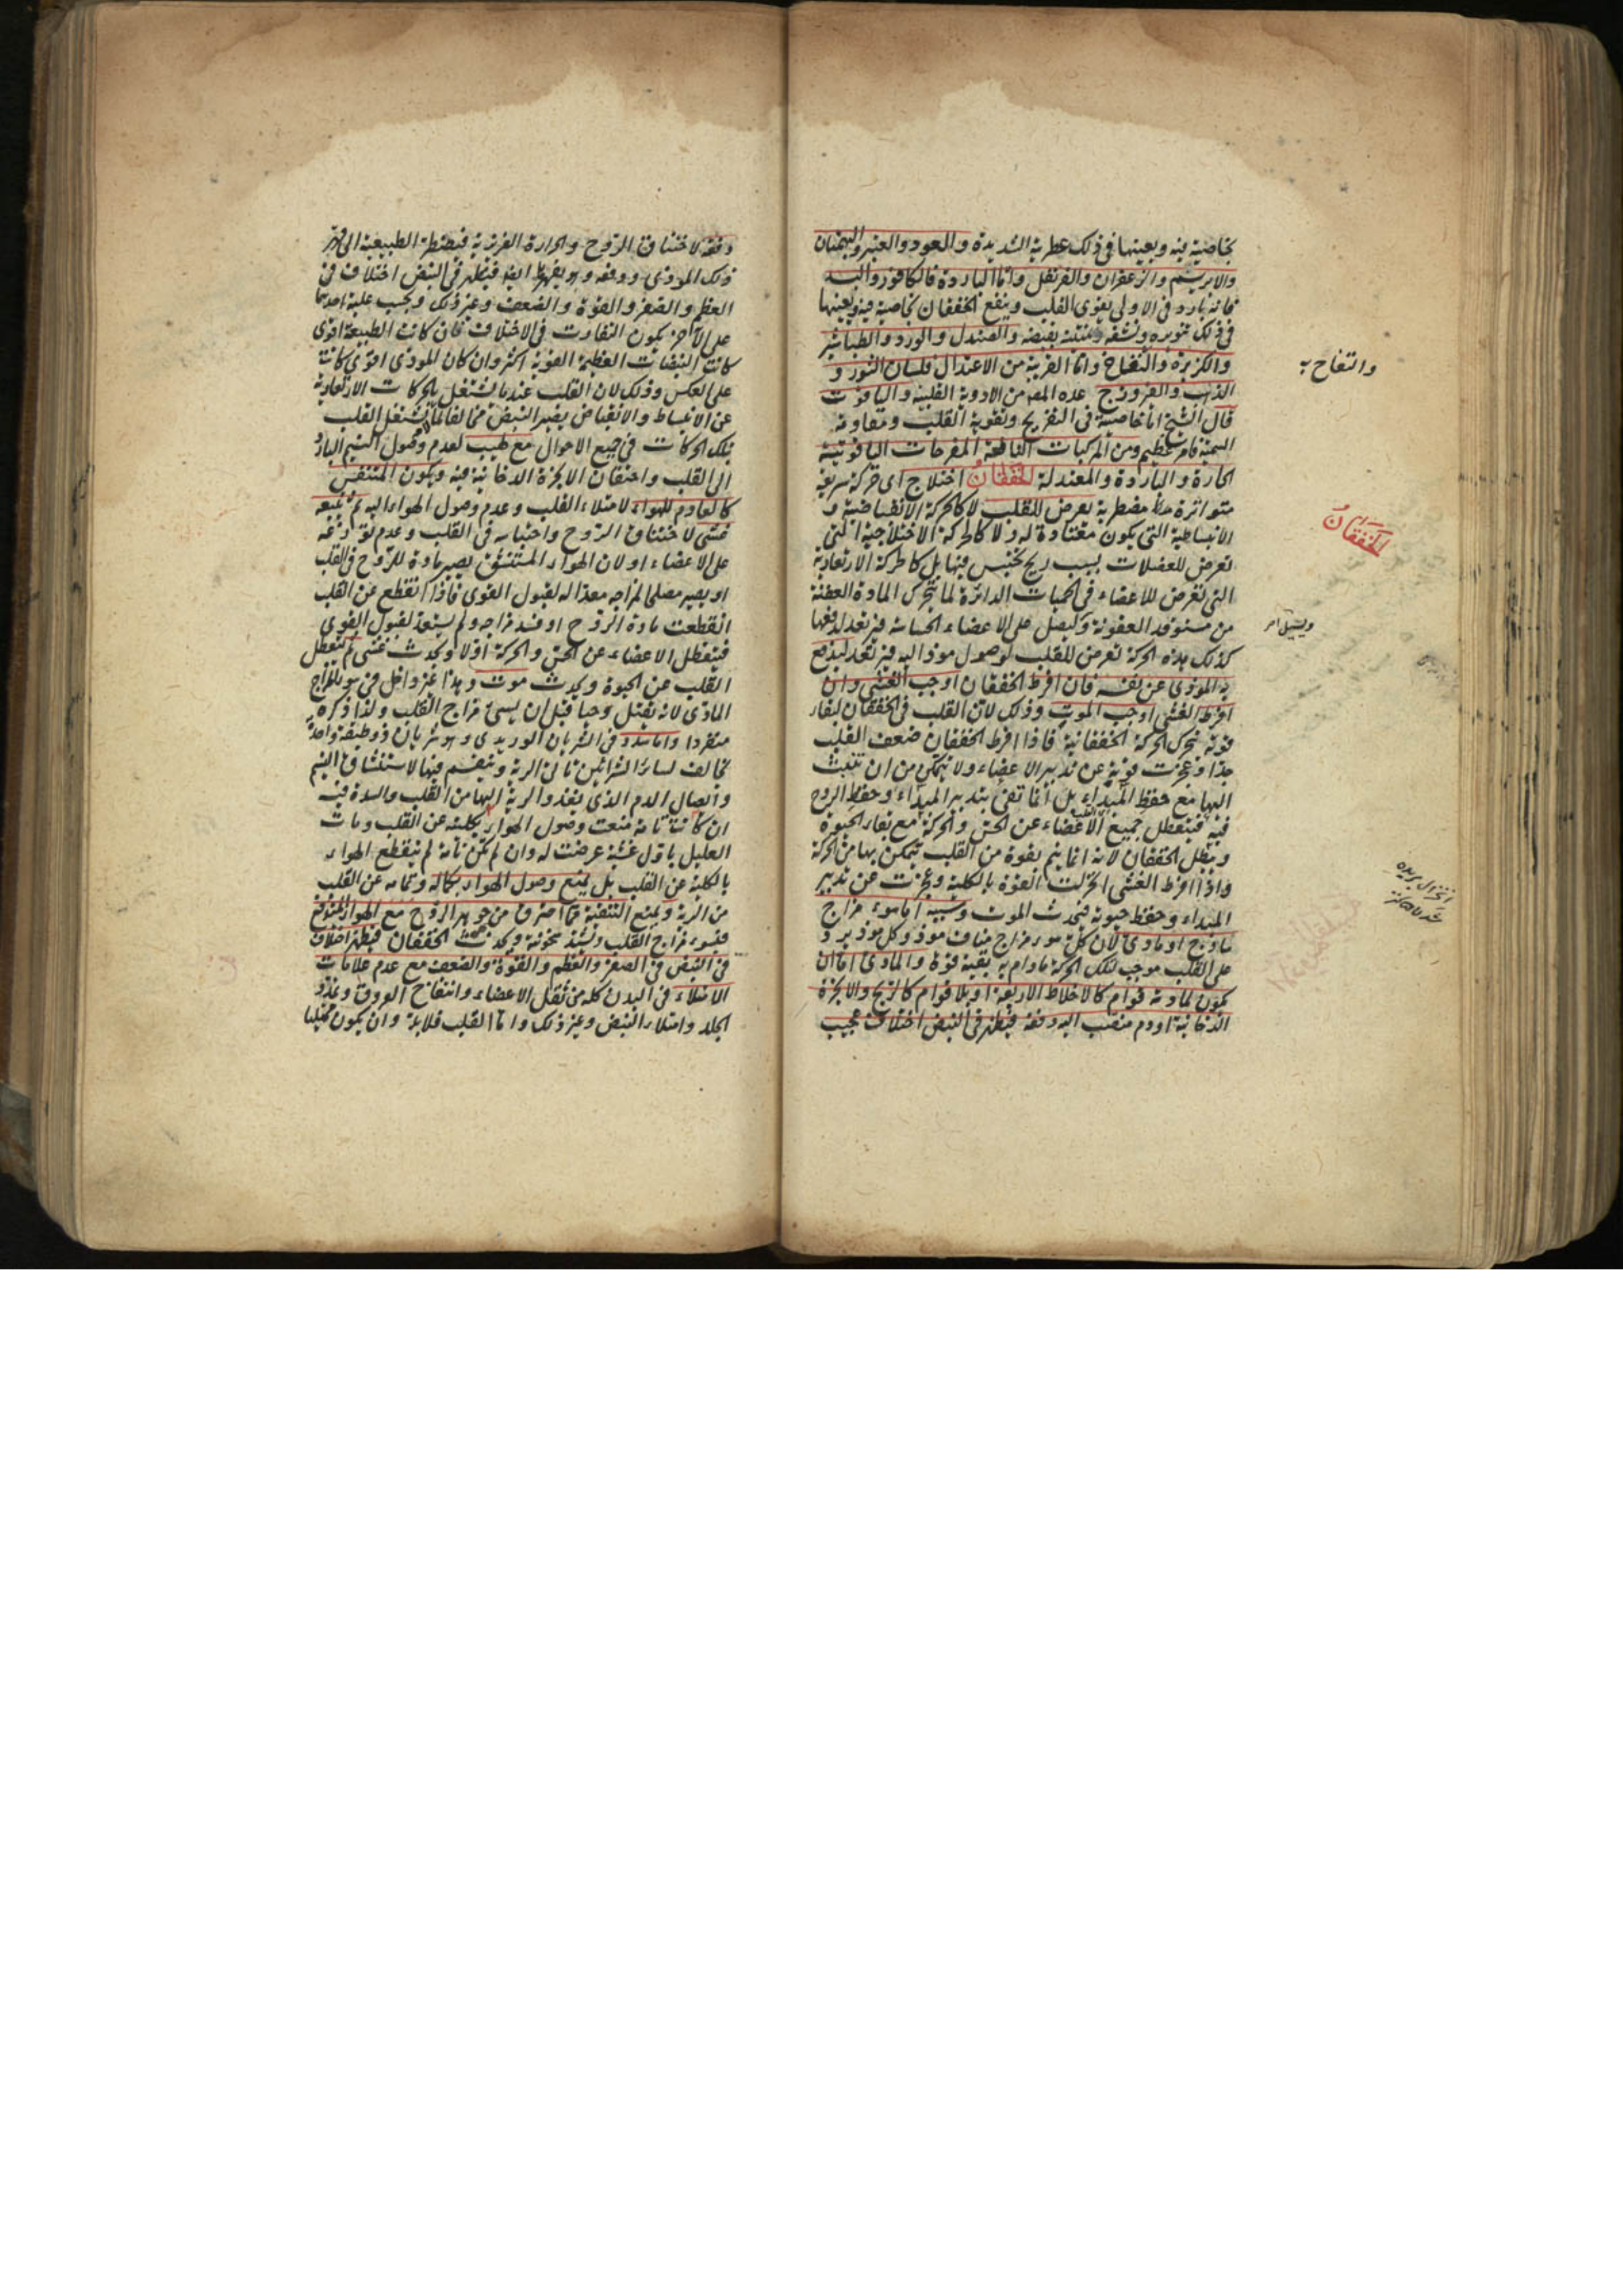 بخاصية فيه ويعينها في ذلك عطريته الشديدة والعود والعنبر والبهمنان
والابريسم والزعفران والقرنفل واما الباردة فالكافور والبسد
فانه بارد في الاولى يقوى القلب وينفع الخفقان بخاصية فيه ويعينها
في ذلك تنويره ونشفه بقبضه والصندل والورد والطباشير
والكزبرة والتفاح واما القريبة من الاعتدال فلسان الثور و
الذهب والفيروزج عده المص من الادوية القلبية والياقوت
قال الشيخ اما خاصيته في التفريح وتقوية القلب ومقاومة
السمية فامر عظيم ومن المركبات النافعة المفرحات الياقوتية
الحارة والباردة والمعتدلة الخفقان اختلاج اى حركة سريعة
متواترة مضطربة يعرض للقلب لا كالحركة الانقباضية و
الانبساطية التى يكون معتادة له ولا كالحركة الاختلاجية التى
تعرض للعضلات بسبب ريح يحتبس فيها بل كالحركة الارتعادية
التى تعرض للاعضاء في الحميات الدائرة لما يتحرك المادة العفنة
من مستوقد العفونة وتصل على الاعضاء الحساسة فترتعد لدفعها
كذلك هذه الحركة تعرض للقلب لوصول موذ اليه فيرتعد ليدفع
به الموذى عن نفسه فان افرط الخفقان اوجب الغشى وان
افرط الغشى اوجب الموت وذلك لان القلب في الخفقان لبقاء
قوته يتحرك الحركة الخفقانية فاذا افرط الخفقان ضعف القلب
جدا وعجزت قوته عن تدبير الاعضاء ولا يتمكن من ان تنبث
اليها مع حفظ المبداء بل انما تفى بتدبير المبداء وحفظ الروح
فيه فيتعطل جميع الاعضاء عن الحس والحركة مع بقاء الحيوة
ويبطل الخفقان لانه انما يتم بقوة من القلب يتمكن بها من الحركة
واذا افرط الغشى انخزلت القوة بالكلية وعجزت عن تدبير
المبداء وحفظ حيوته فيحدث الموت وسببه اما سوء مزاج
ساذج او مادى لان كل سوء مزاج مناف موذ وكل موذ يرد
على القلب موجب لتلك الحركة مادام به بقية قوة والمادى اما ان
يكون لمادته قوام كالاخلاط الاربعة او بلا قوام كالريح والابخرة
الدخانية او دم منصب اليه دفعة فيظهر في النبض اختلاف عجيب
والتفاح به
الخفقان
انخزال بريده
دفعة لاختناق الروح والحرارة الغريزية فيضطر الطبيعية الى
ذلك الموذى ودفعه وهو يقهرها ايضا فيظهر في النبض اختلاف في
العظم والصغر والقوة والضعف وغير ذلك وبحسب غلبة احدهما
على الآخر يكون التفاوت في الاختلاف فان كانت الطبيعة اقوى
كانت النبضات العظيمة القوية اكثر وان كان الموذى اقوى كانت
على العكس وذلك لان القلب عندما يشتغل بالحركات الارتعادية
عن الانبساط والانقباض يصير النبض مخالفا لما يشتغل القلب
بتلك الحركات في جميع الاحوال مع لهيب لعدم وصول النسيم البارد
الى القلب واحتقان الابخرة الدخانية فيه ويكون المتنفس
كالعادم للهواء لامتلاء القلب وعدم وصول الهواء اليه ثم يتبعه
غشى لاختناق الروح واحتباسه في القلب وعدم توزعه
على الاعضاء او لان الهواء المستنشق يصير مادة للروح في القلب
او يصير مصلحا لمزاجه معدا له لقبول القوى فاذا انقطع عن القلب
انقطعت مادة الروح او فسد مزاجه ولم يستعد لقبول القوى
فيتعطل الاعضاء عن الحس والحركة اولا ويحدث غشى ثم يتعطل
القلب عن الحيوة ويحدث موت وهذا غير داخل في سوء المزاج
المادى لانه يقتل وحيا قبل ان يسىء مزاج القلب ولذا ذكره
منفردا واما سدد في الشريان الوريدى وهو شريان ذو طبقة واحدة
مخالف لسائر الشرائين تاتى الرية وينقسم فيها لاستنشاق النسيم
وايصال الدم الذى يغذو الرية اليها من القلب والسدة فيه
ان كانت تامة منعت وصول الهواء بكليته عن القلب ومات
العليل باول غشية عرضت له وان لم تكن تامة لم ينقطع الهواء
بالكلية عن القلب بل يمنع وصول الهواء بكماله وتمامه عن القلب
من الرية ويمنع التنقية مما احترق من جوهر الروح مع الهواء المندفع
فيسوء مزاج القلب وتشتد سخونته ويحدث الخفقان فيظهر اختلاف
في النبض في الصغر والعظم والقوة والضعف مع عدم علامات
الامتلاء في البدن كله من ثقل الاعضاء وانتفاخ العروق وتمدد
الجلد وامتلاء النبض وغير ذلك واما القلب فلا بد وان يكون ممتليا